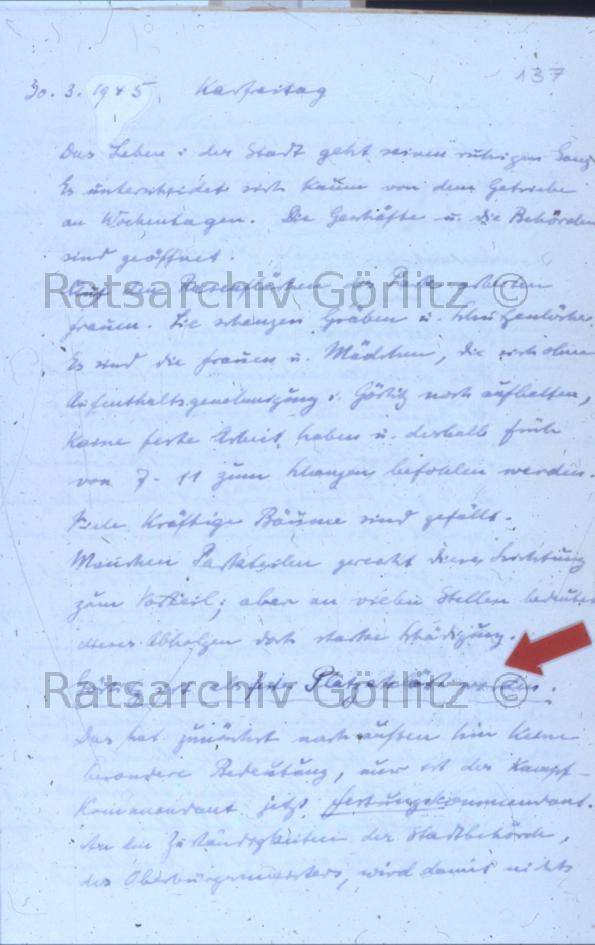 137
30. 3. 1945. Karfreitag
Das Leben i. der Stadt geht seinen ruhigen Gang.
Es unterscheidet sich kaum von dem Getriebe
an Wochentagen. Die Geschäfte u. die Behörden
sind geöffnet.
Auf den Rasenflächen des Parks arbeiten
Ratsarchiv Görlitz ©
Frauen. Sie schanzen Gräben u. Schützenlöcher.
Es sind die Frauen u. Mädchen, die sich ohne
Aufenthaltsgenehmigung i. Görlitz noch aufhalten,
keine feste Arbeit haben u. deshalb früh
von 7 - 11 zum Schanzen befohlen werden.
Viele kräftige Bäume sind gefällt.
Manchen Parkteilen gereicht diese Lichtung
zum Vorteil; aber an vielen Stellen bedeutet
dieses Abholzen doch starke Schädigung.
Görlitz ist als fester Platz erklärt worden.
Ratsarchiv Görlitz ©
Das hat zunächst nach außen hin keine
besondere Bedeutung, nur ist der Kampf-
Kommandant jetzt Festungskommandant.
An den Zuständigkeiten der Stadtbehörde,
des Oberbürgermeisters, wird damit nichts